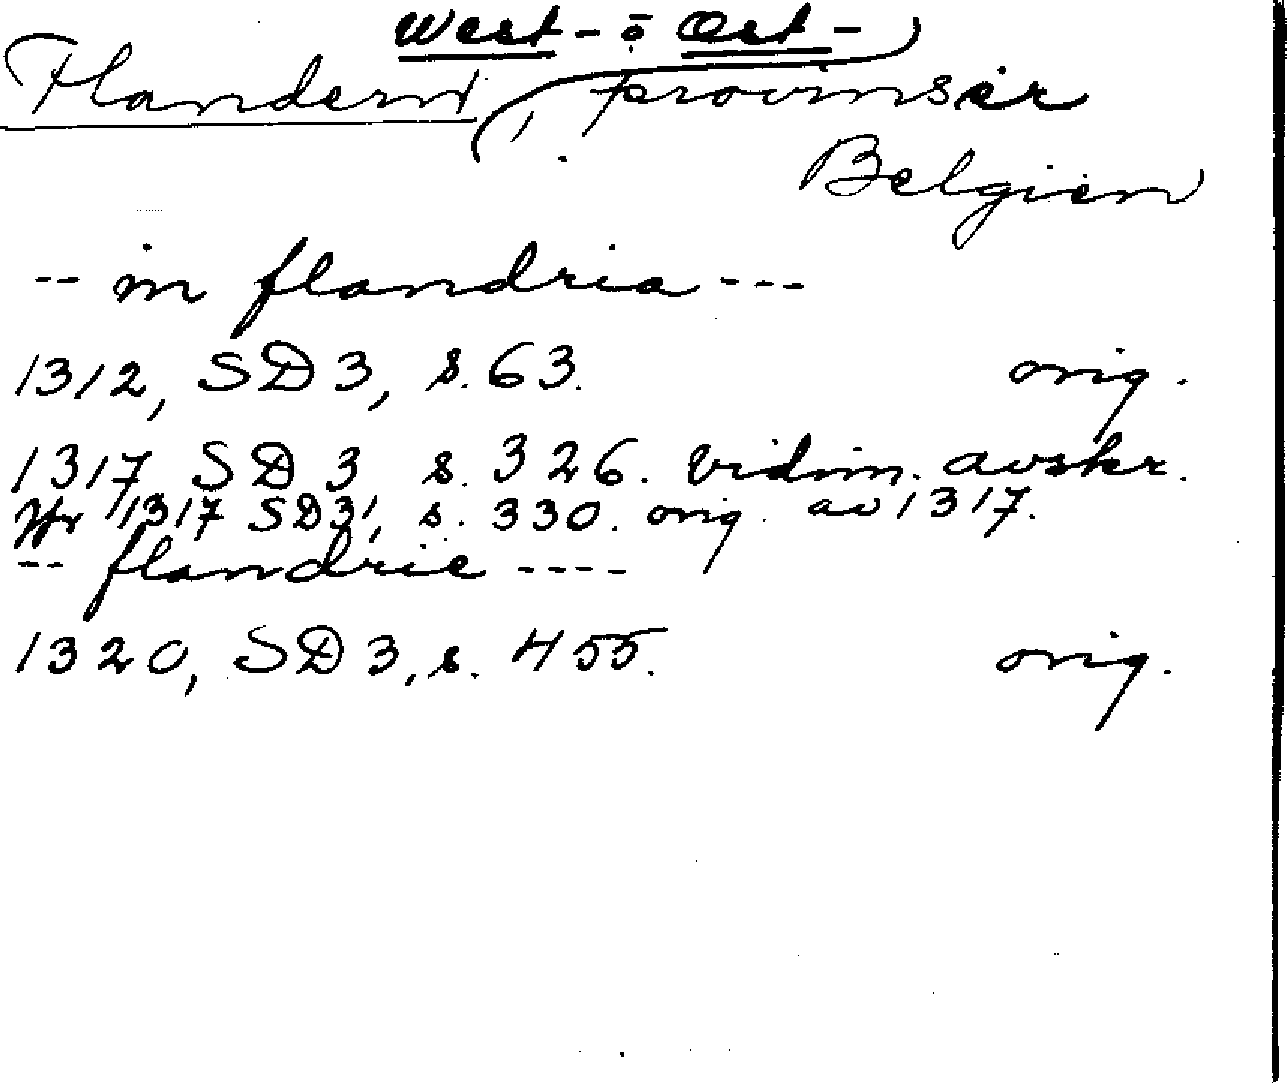 West- o Ost-
Flandern, provinser
Belgien
-- in flandria ---
1312, SD 3, s. 63. orig.
1317 SD 3 s. 326. vidim. avskr.
Jfr 1317 SD 3, s. 330. orig. av 1317.
-- flandrie ----
1320, SD 3, s. 455. orig.